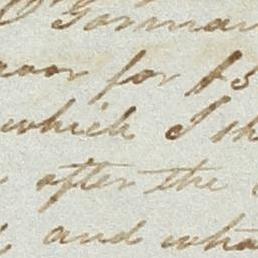 O'Gorman
for $3
which I sh
after the
and wha